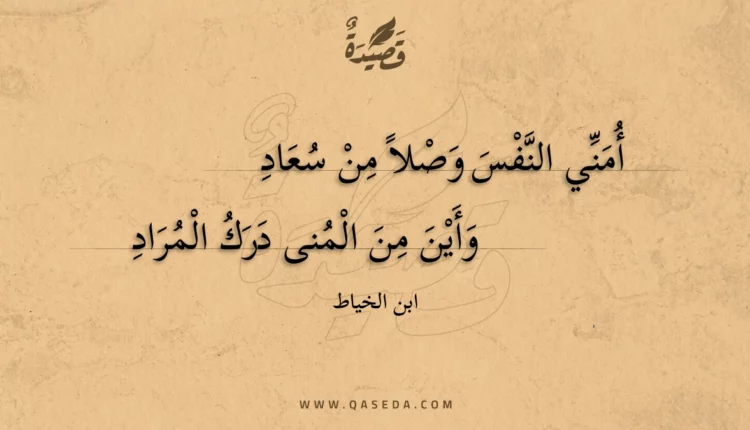 قَصِيْدَةٌ
أُمَنِّي النَّفْسَ وَصْلاً مِنْ سُعَادِ
وَأَيْنَ مِنَ الْمُنى دَرَكُ الْمُرَادِ
ابن الخياط
WWW.QASEDA.COM